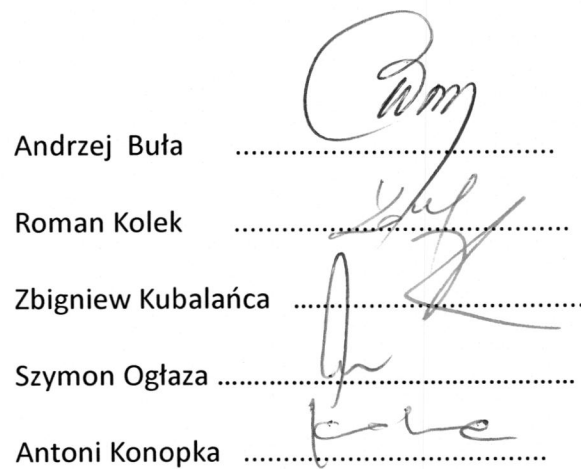 Andrzej Buła ........................................
Roman Kolek ..........................................
Zbigniew Kubalańca ....................................
Szymon Ogłaza .............................................
Antoni Konopka .........................................